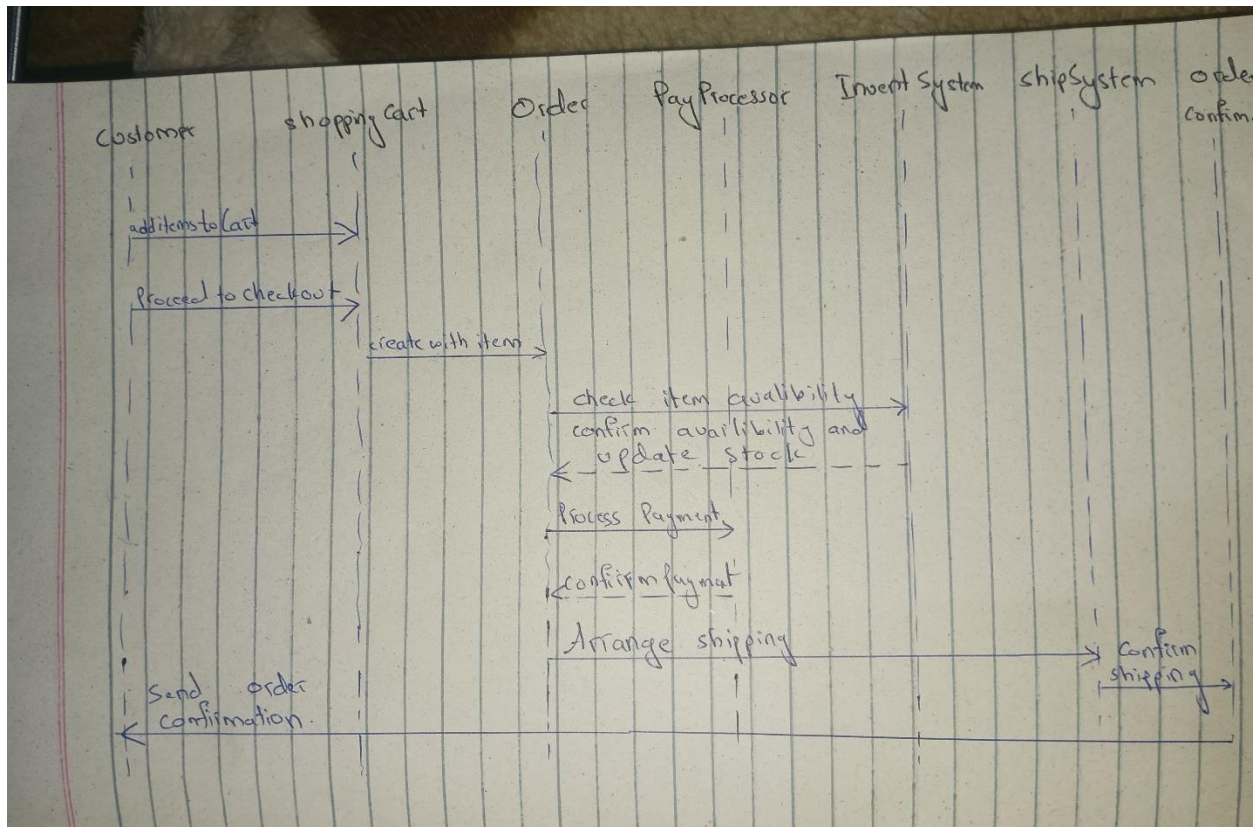 Customer
shopping Cart
Order
PayProcessor
Invent System
shipSystem
Orde
Confim.
additemstoCart
Proceed to checkout
create with item
check item avalibility
confirm availibility and
update stock
Process Payment
confirm Paymat
Arrange shipping
Confirm
shipping
Send order
confirmation.